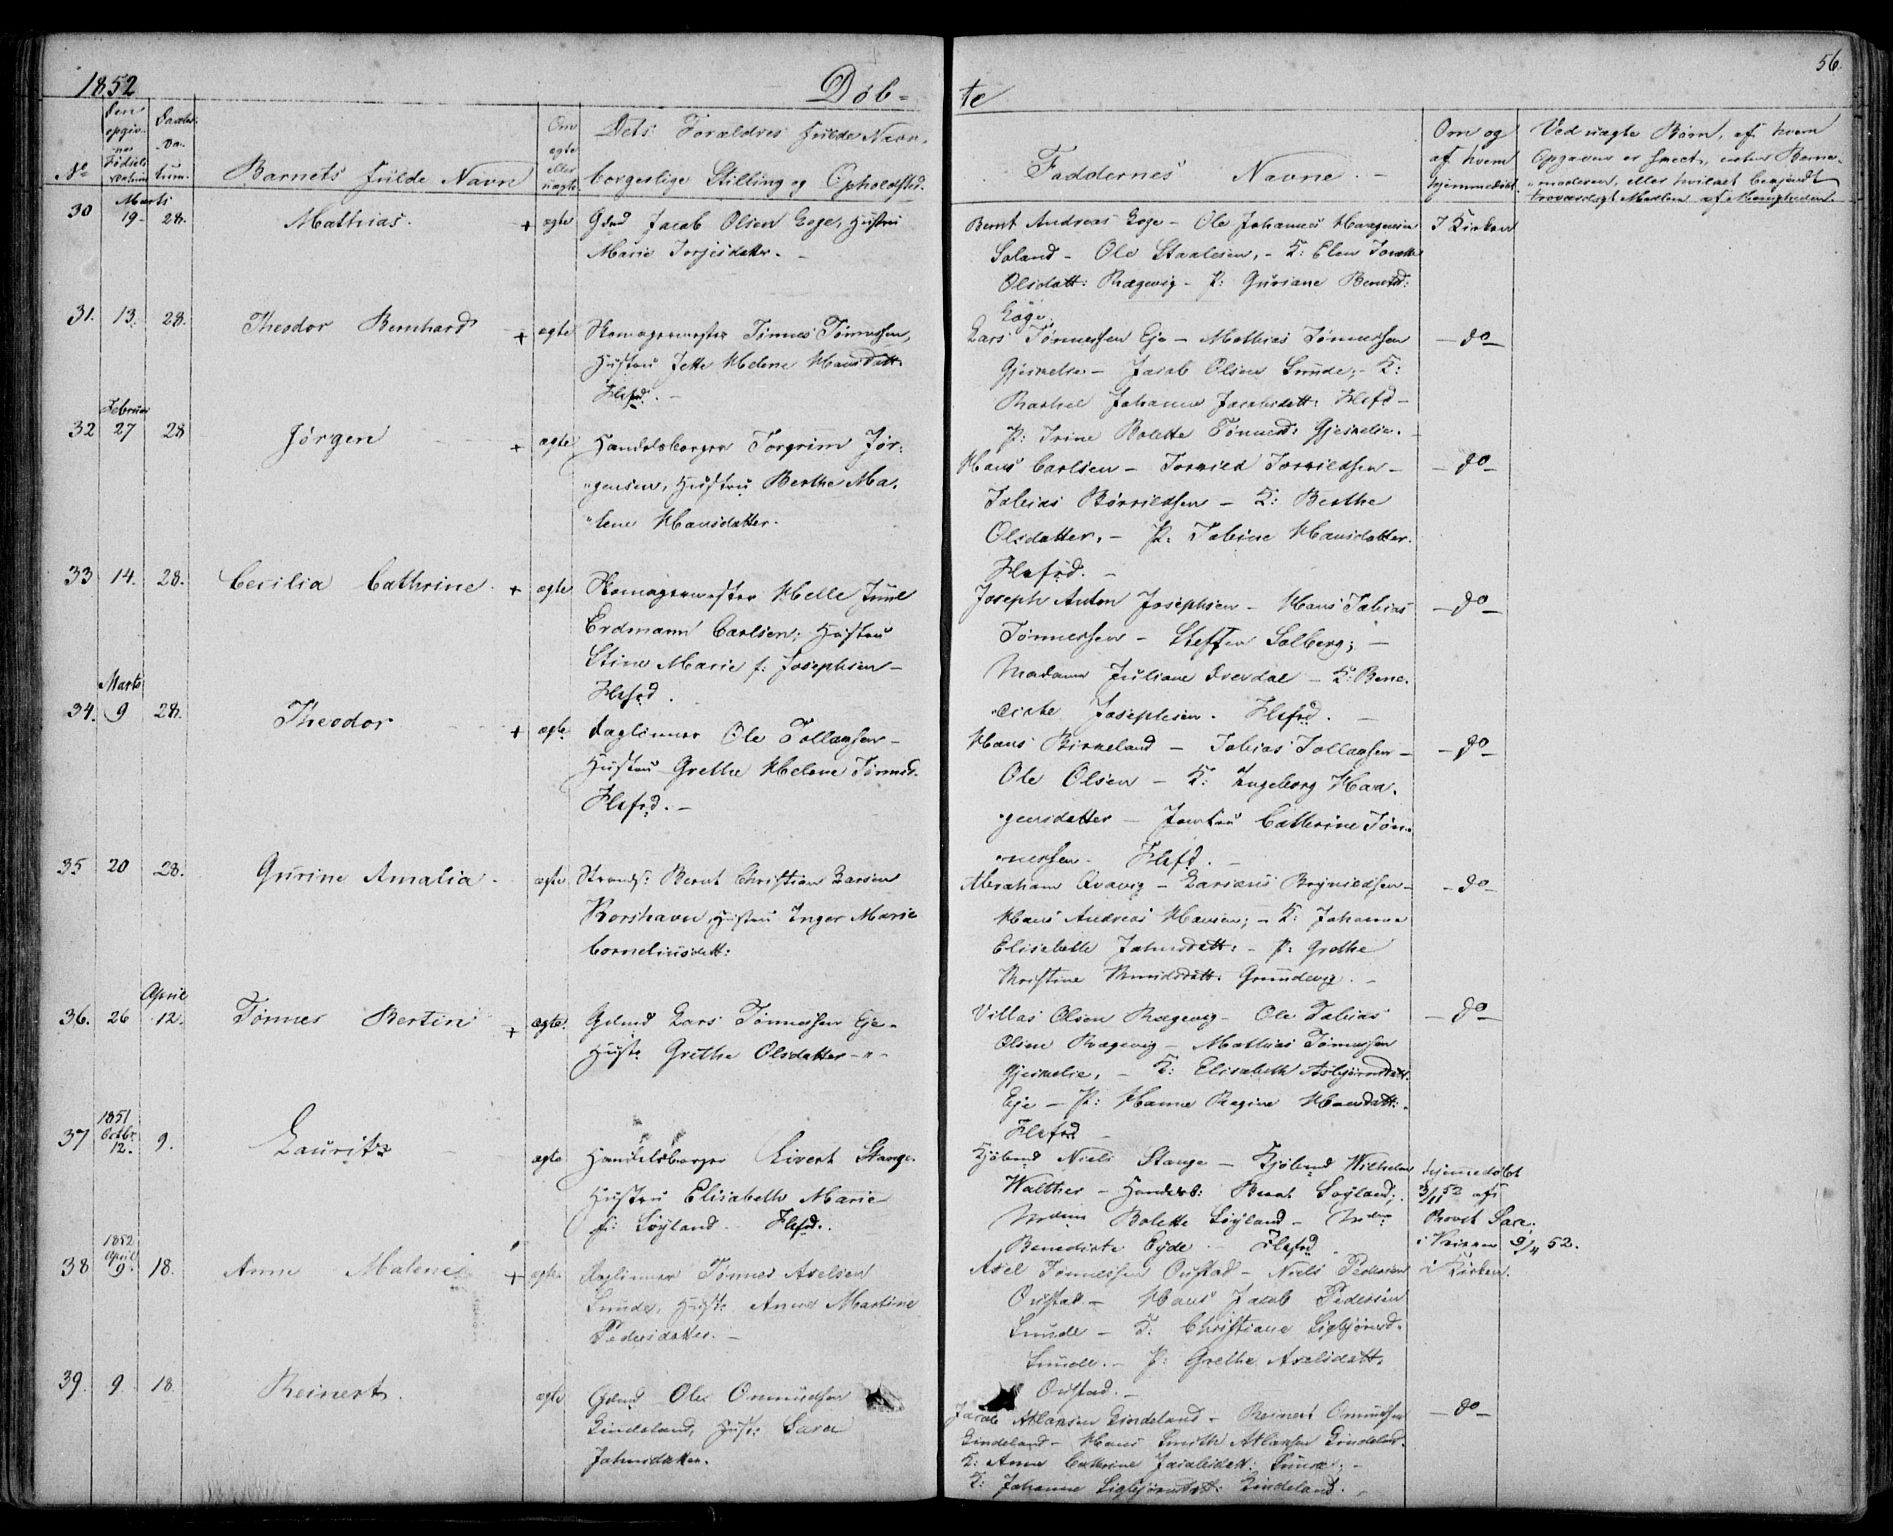 1852
Døb-
te
56.
No
Den opgivne Fødselsdatum
Daabsdatum.
Barnets fulde Navn
Om ægte eller uægte.
Dets Forældres fulde Navn,
borgerlige Stilling og Opholdsted.
Faddernes Navne. -
Om og af hvem hjemmedøbt
Ved uægte Børn, af hvem
Opgaven er skeet, enten Barne-
moderen, eller hvilket bekjendt
troværdigt Medlem af Menigheden.
30 Marts 19- 28. Mathias. + ægte
Gdmd Jacob Olsen Eoge, Hustru
Marie Torjesdatter. -
Bernt Andreas Eoge - Ole Johannes Haagensen
Soland - Ole Staalesen, - K: Elen Tonette
Olsdatt: Rægevig - P: Guriane Berntsd:
Eoge.
I Kirken
31. 13. 28. Theodor Bernhard + ægte
Skomagermester Tønnes Tønnessen,
Hustru Jette Helene Hansdatt:
Flefd. -
Lars Tønnessen Eje - Mathias Tønnessen
Gjeskelie - Jacob Olsen Sunde, - K:
Rachel Johanne Jacobsdatt: Flefd -
P: Trine Bolette Tønnesd: Gjeskelie. -
- do -
32 Februar 27 28 Jørgen + ægte
Handelsborger Torgrim Jør-
gensen, Hustru Berthe Ma-
lene Hansdatter.
Hans Carlsen - Torkild Torkildsen -
Tobias Børrildsen - K: Berthe
Olsdatter, - P. Tobine Hansdatter.
Flefjd. -
- do -
33 14. 28. Cecilia Cathrine. + ægte
Skomagermester Helle Juul
Erdmann Carlsen; Hustru
Stine Marie f: Josephsen -
Flefjd.
Joseph Anton Josephsen - Hans Tobias
Tønnessen - Steffen Solberg; -
Madame Juliane Drevdal - K: Bene-
dicte Josephsen. Flefjd. -
- do -
34. Marts 9 28. Theodor + ægte
Daglønner Ole Tollaksen -
Hustru Grethe Helene Tønnesd.
Flefjd. -
Hans Birkeland - Tobias Tollaksen -
Ole Olsen - K: Ingeborg Haa-
gensdatter - Jomfru Cathrine Tøn-
nessen - Flefd. -
- do -
35 20 28. Gurine Amalia. - ægte
Strands: Bernt Christian Larsen
Korshavn, Hustru Inger Marie
Corneliusdatt:
Abraham Qvavig - Larsæus Brynildsen -
Hans Andreas Hansen; - K: Johanne
Elisabeth Jahnsdatt: - P: Grethe
Kristine Knudsdatt: Grundevig. -
- do -
36. 26 April 12. Tønnes Bertin + ægte.
Gdmd Lars Tønnessen Eje -
Hustr Grethe Olsdatter - " -
Villas Olsen Rægevig - Ole Tobias
Olsen Rægevig - Mathias Tønnessen
Gjeskelie, - K: Elisabeth Asbjørnsdatt:
Eje - P: Hanne Regine Hansdatt:
Flefjd -
- do -
37 1851 Octbr. 12. 9. Lauritz ægte
Handelsborger Sivert Stange.
Hustru Elisabeth Marie
f: Løyland - Flefjd.
Kjøbmd Niels Stange - Kjøbmd Wilhelm
Walther - Handelsb: Bernt Løyland;
Mdm Bolette Løyland - Mdm
Benedicte Eyde - Flefjd
hjemmedøbt
3/11 52 af
Provst Sare.
i Kirken 9/4 52.
38 1852 April 9. 18. Anne Malene + ægte
Daglønner Tønnes Axelsen
Sunde, Hustr Anne Martine
Pedersdatter. -
Axel Tønnessen Oustad - Niels Pedersen
Oustad - Hans Jacob Pedersen
Sunde - K: Christiane Sigbjørnsd.
Sunde. - P: Grethe Axelsdatt:
Oustad. -
i Kirken.
39. 9. 18. Reinert. ægte
Gdmd Ole Omundsen
Lindeland, Hust: Sara
Jahnsdatter.
Jacob Atlaksen Lindeland - Reinert Omundsen
Lindeland - Hans Smith Atlaksen Lindeland.
K: Anne Cathrine Jacobsdatt: Sunde; -
K: Johanne Sigbjørnsdatt: Lindeland.
- do -